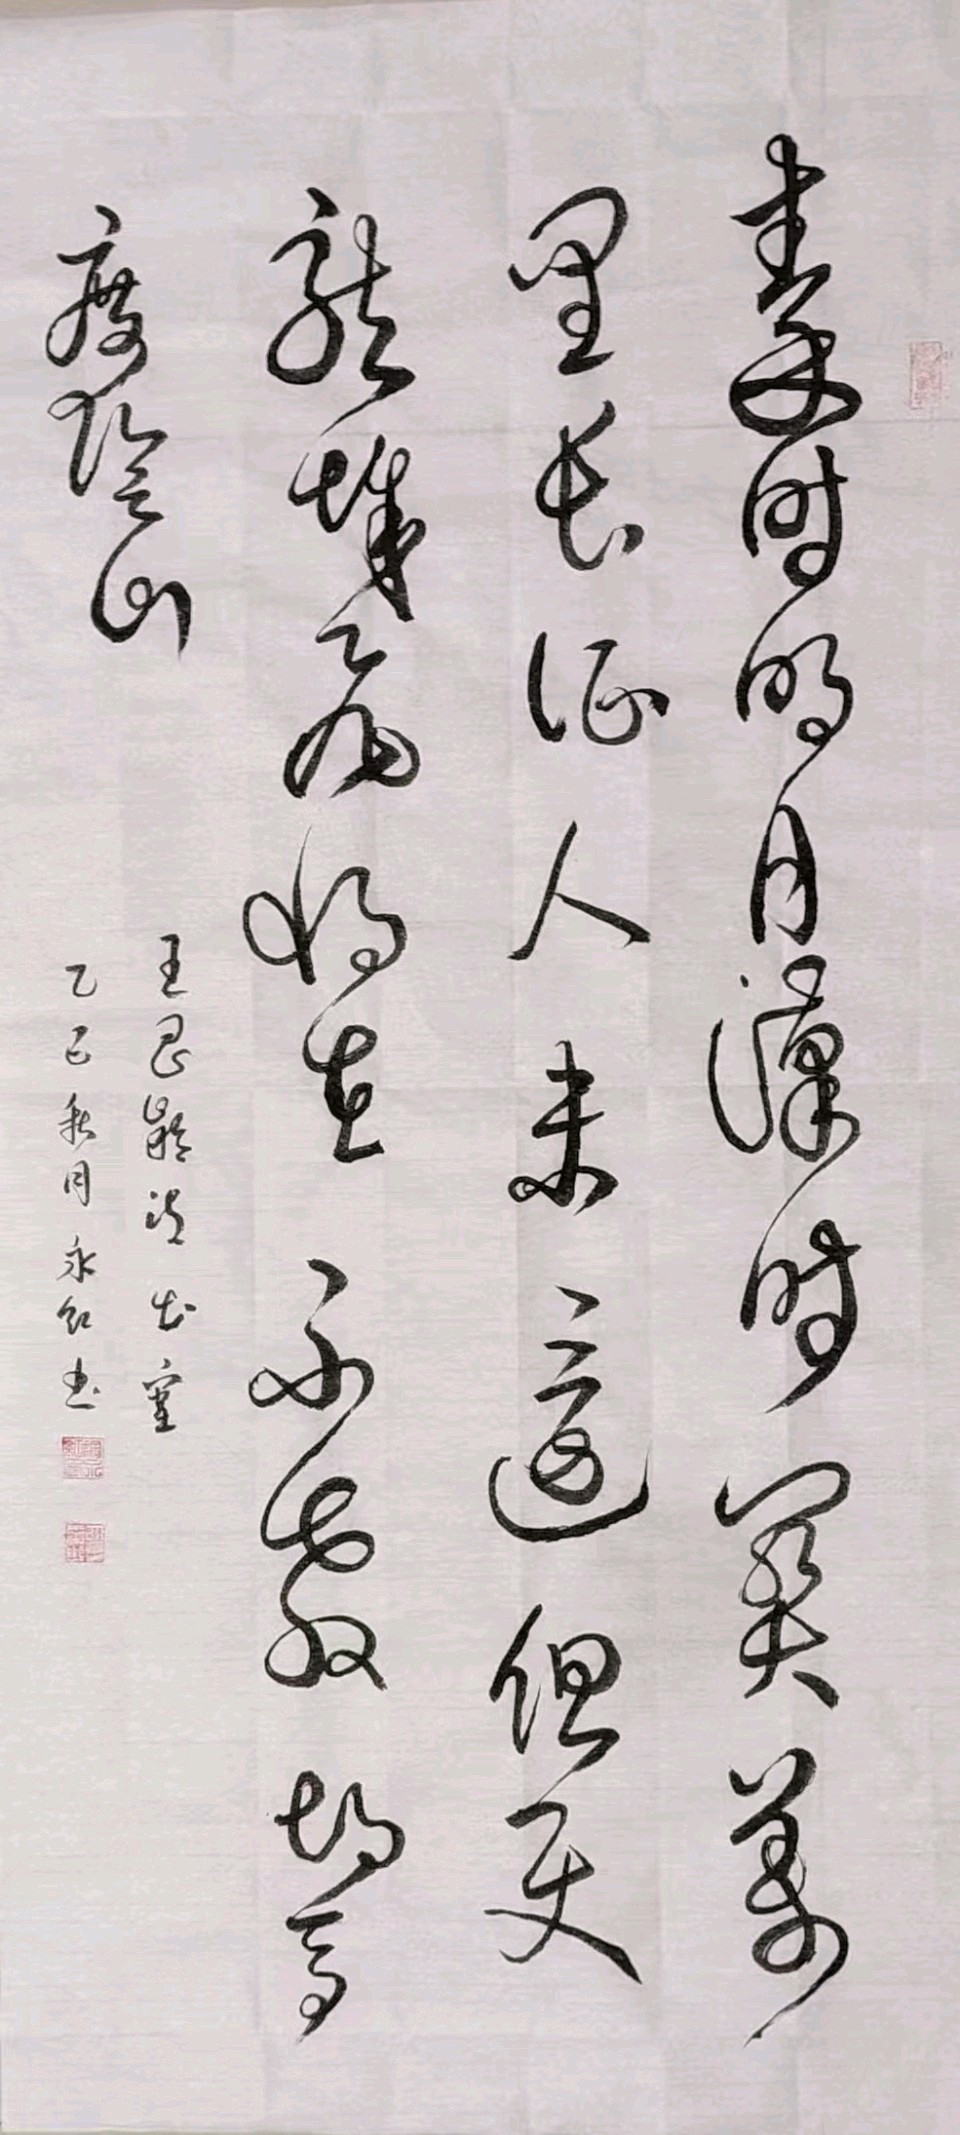 秦时明月汉时关万
里长征人未还但使
龙城飞将在不教胡马
度阴山
王昌龄诗出塞
乙巳秋月永红书